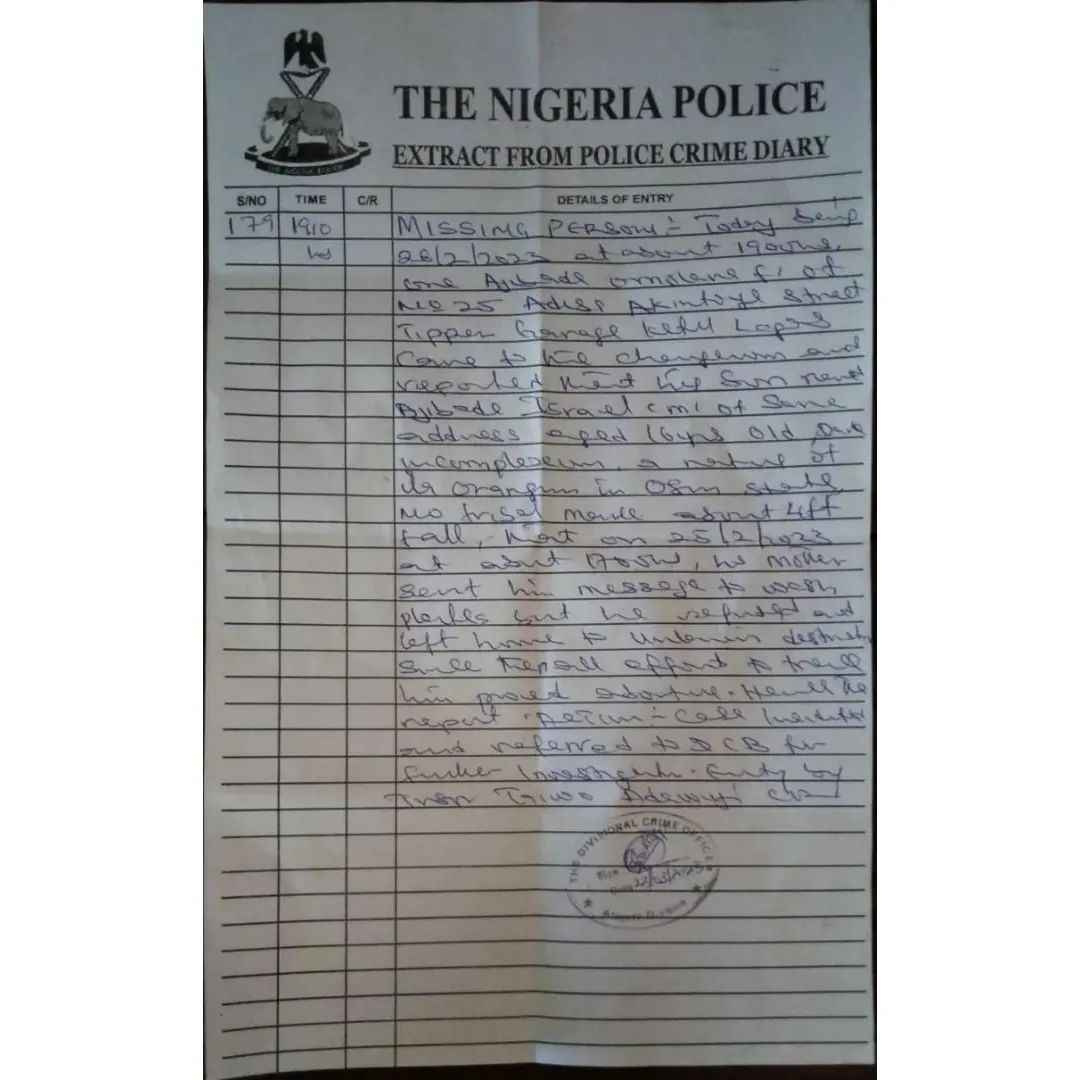 THE NIGERIA POLICE
EXTRACT FROM POLICE CRIME DIARY
S/NO TIME C/R DETAILS OF ENTRY
179 1910 MISSING PERSON:- Today being
hrs 26/2/2023 at about 1900hrs,
one Ajibade f, of
No 25 Akintoye street
Tipper Garage Ketu Lagos
Came to the and
reported that
Ajibade Israel m, of Same
address aged 16yrs old Dark
in complexion, a native of
Ila Orangun in Osun state,
No tribal mark about 4ft
tall, that on 25/2/2023
at about his mother
sent him message to wash
plates but he refused and
left home to
Since all effort to
him proved abortive. the
report. Action:- Case
and referred to DCB for
further Entry by
Adewuyi
THE DIVISIONAL CRIME OFFICER